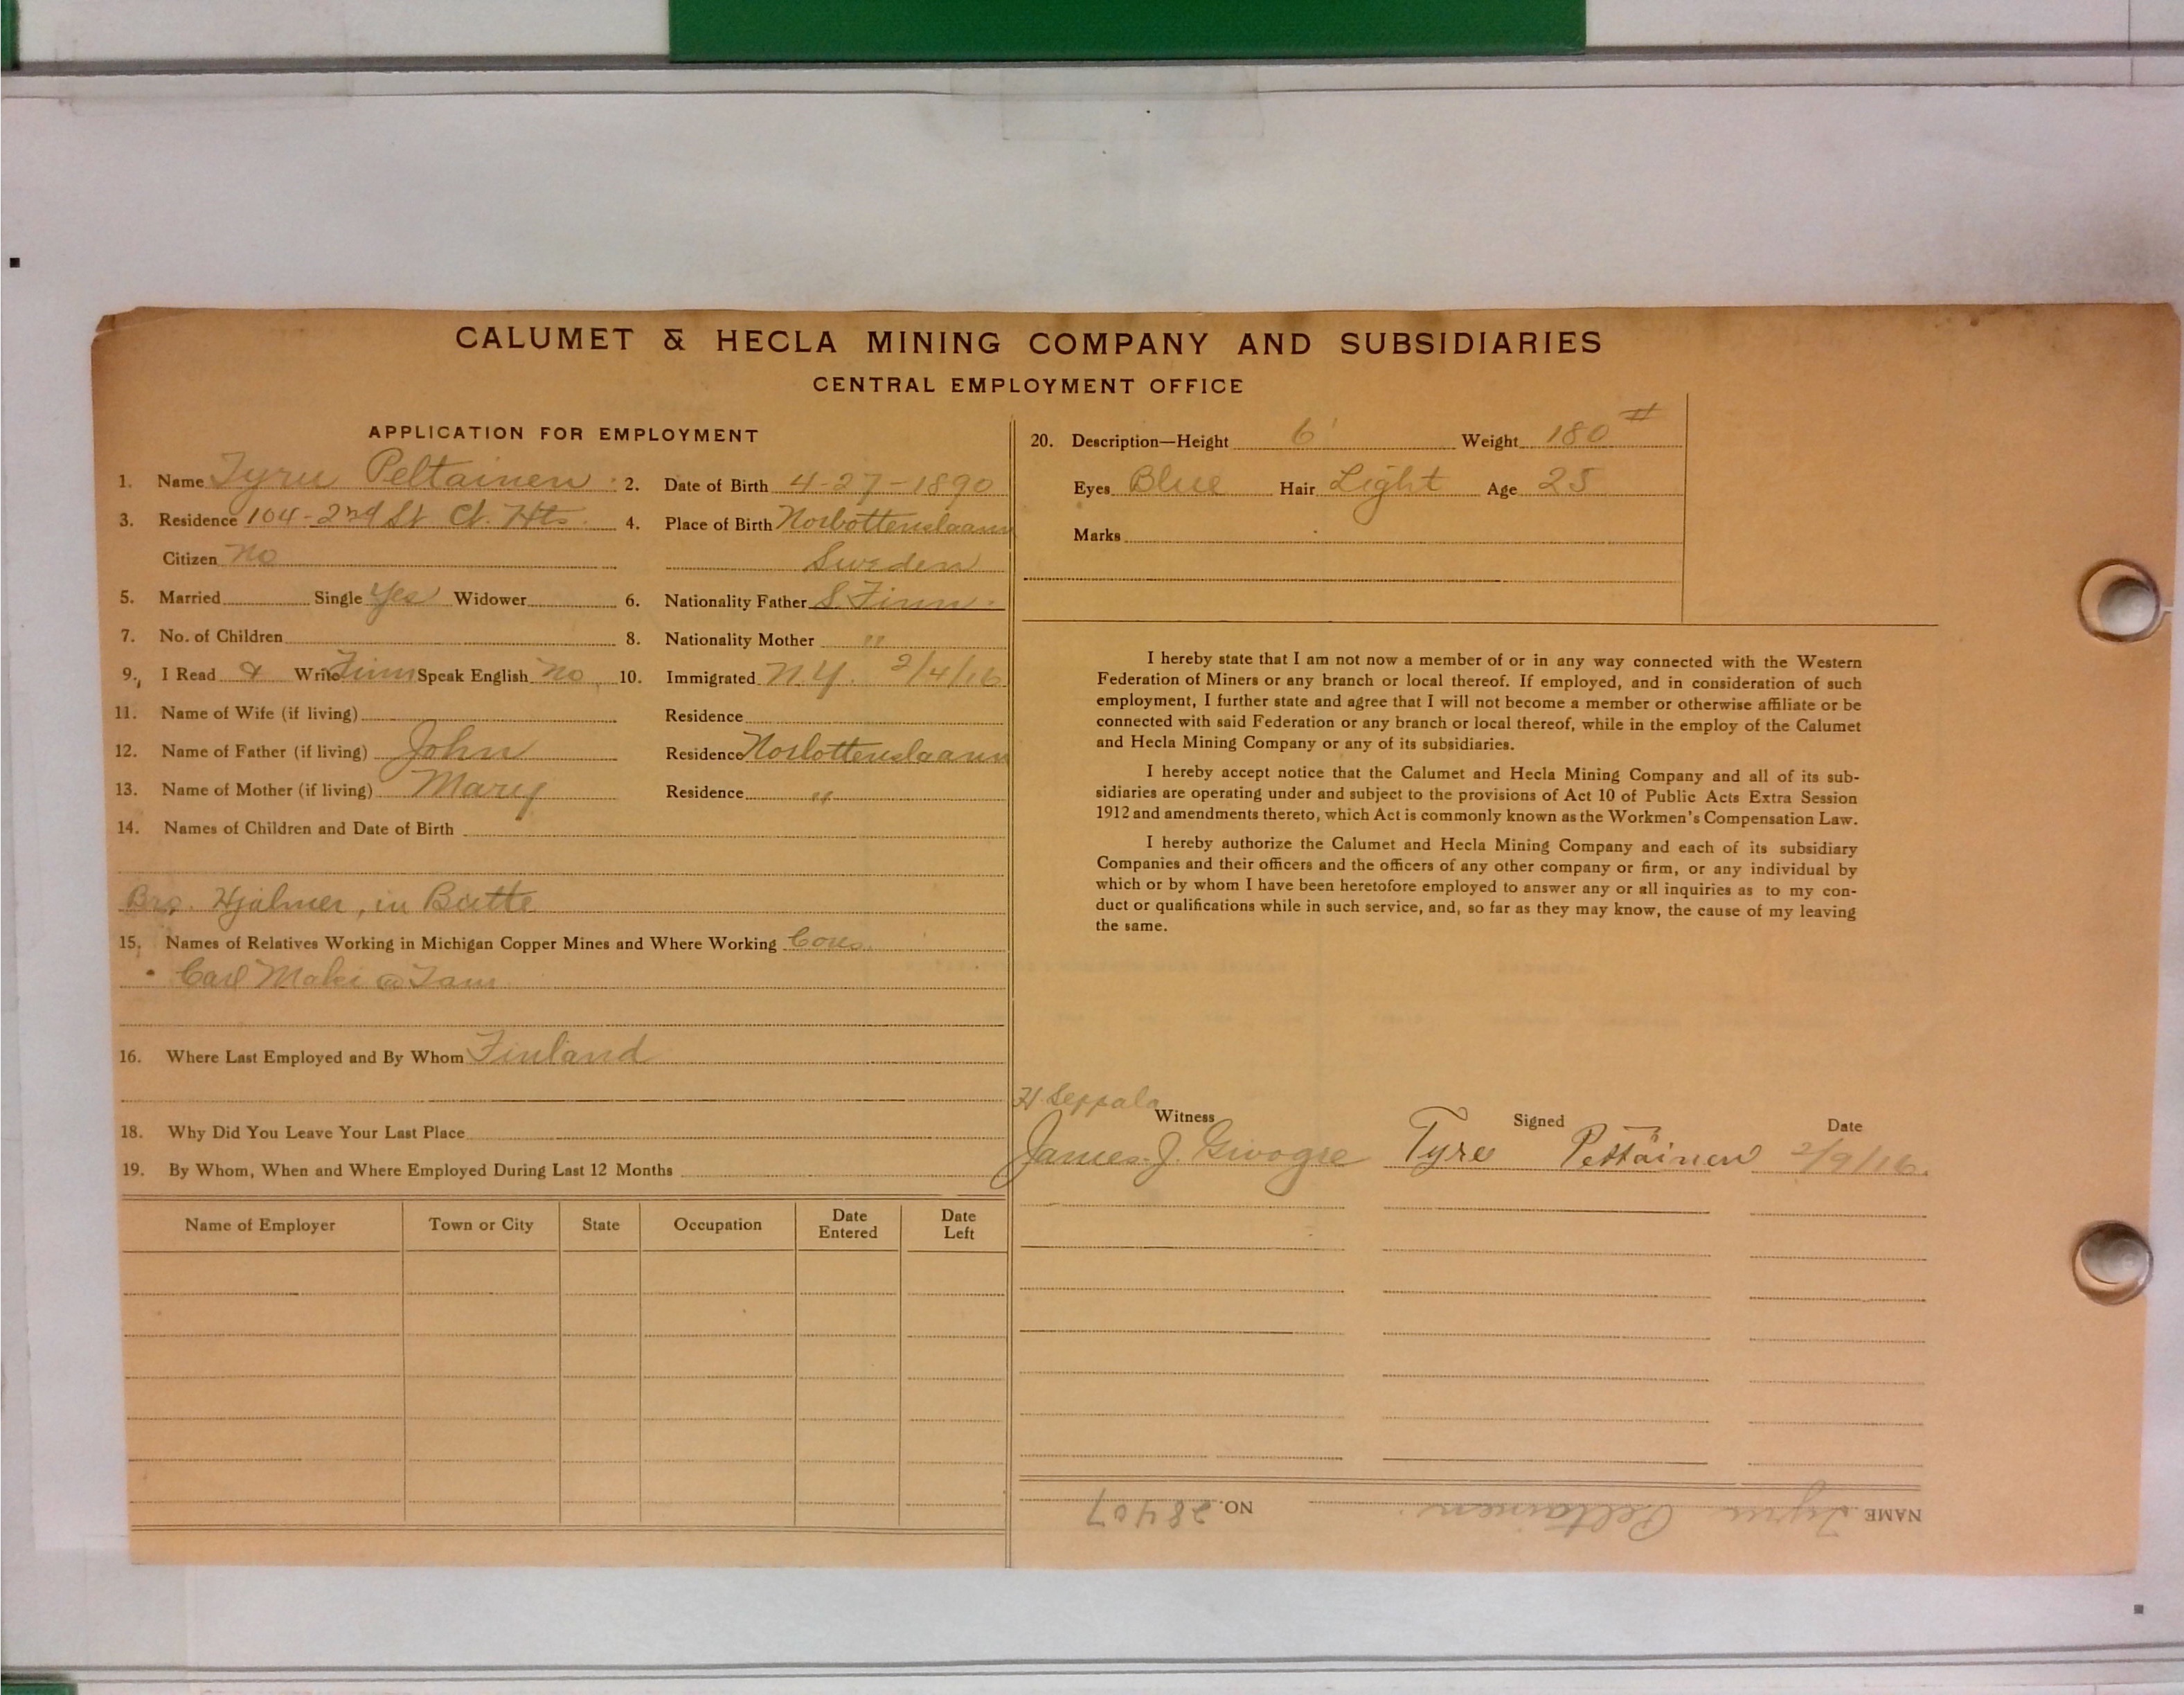 CALUMET & HECLA MINING COMPANY AND SUBSIDIARIES
CENTRAL EMPLOYMENT OFFICE
APPLICATION FOR EMPLOYMENT
1. Name Tyru Peltainen 2. Date of Birth 4-27-1890
3. Residence 104-2nd St Ct. Hts. 4. Place of Birth Norbottenslaann
Citizen No Sweden
5. Married Single Yes Widower 6. Nationality Father S. Finn.
7. No. of Children 8. Nationality Mother "
9. I Read & Write Finn Speak English No 10. Immigrated N.Y. 2/4/16
11. Name of Wife (if living) Residence
12. Name of Father (if living) John Residence Norbottenslaann
13. Name of Mother (if living) Mary Residence "
14. Names of Children and Date of Birth
Bro. Hjalmer, in Butte
15. Names of Relatives Working in Michigan Copper Mines and Where Working Cous.
Carl Maki @ Tam
16. Where Last Employed and By Whom Finland
18. Why Did You Leave Your Last Place
19. By Whom, When and Where Employed During Last 12 Months
Name of Employer Town or City State Occupation Date Entered Date Left
20. Description—Height 6' Weight 180 #
Eyes Blue Hair Light Age 25
Marks
I hereby state that I am not now a member of or in any way connected with the Western
Federation of Miners or any branch or local thereof. If employed, and in consideration of such
employment, I further state and agree that I will not become a member or otherwise affiliate or be
connected with said Federation or any branch or local thereof, while in the employ of the Calumet
and Hecla Mining Company or any of its subsidiaries.
I hereby accept notice that the Calumet and Hecla Mining Company and all of its sub-
sidiaries are operating under and subject to the provisions of Act 10 of Public Acts Extra Session
1912 and amendments thereto, which Act is commonly known as the Workmen's Compensation Law.
I hereby authorize the Calumet and Hecla Mining Company and each of its subsidiary
Companies and their officers and the officers of any other company or firm, or any individual by
which or by whom I have been heretofore employed to answer any or all inquiries as to my con-
duct or qualifications while in such service, and, so far as they may know, the cause of my leaving
the same.
H. Seppala
Witness Signed Date
James. J. Tyre Pettäinen 2/9/16.
NAME Tyru Peltainen. NO. 28407